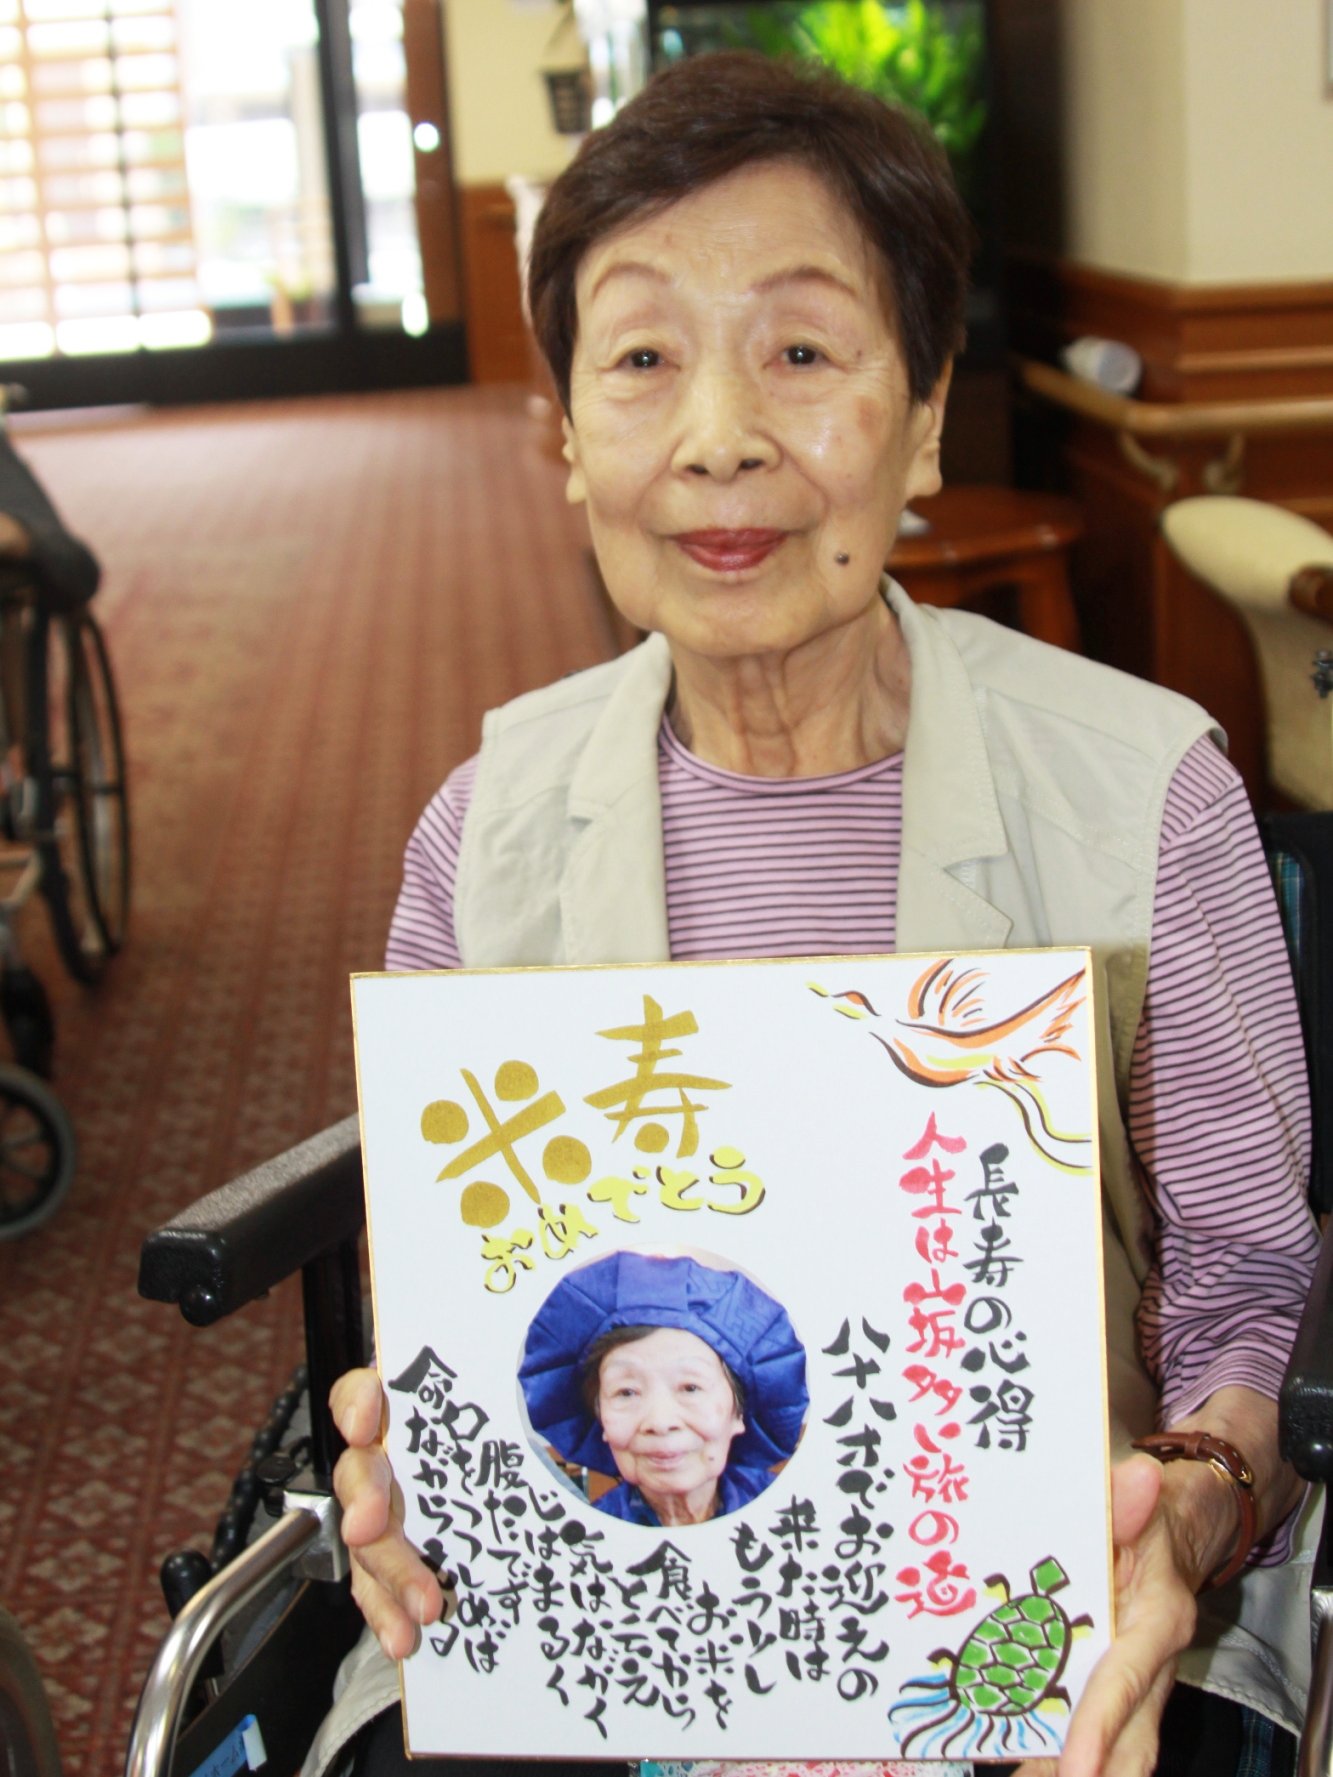 米寿
おめでとう
長寿の心得
人生は山坂多い旅の道
八十八才でお迎えの
来た時は
もう少し
お米を
食べてから
と云え
気はながく
心はまるく
腹たてず
口をつつしめば
命ながらえる